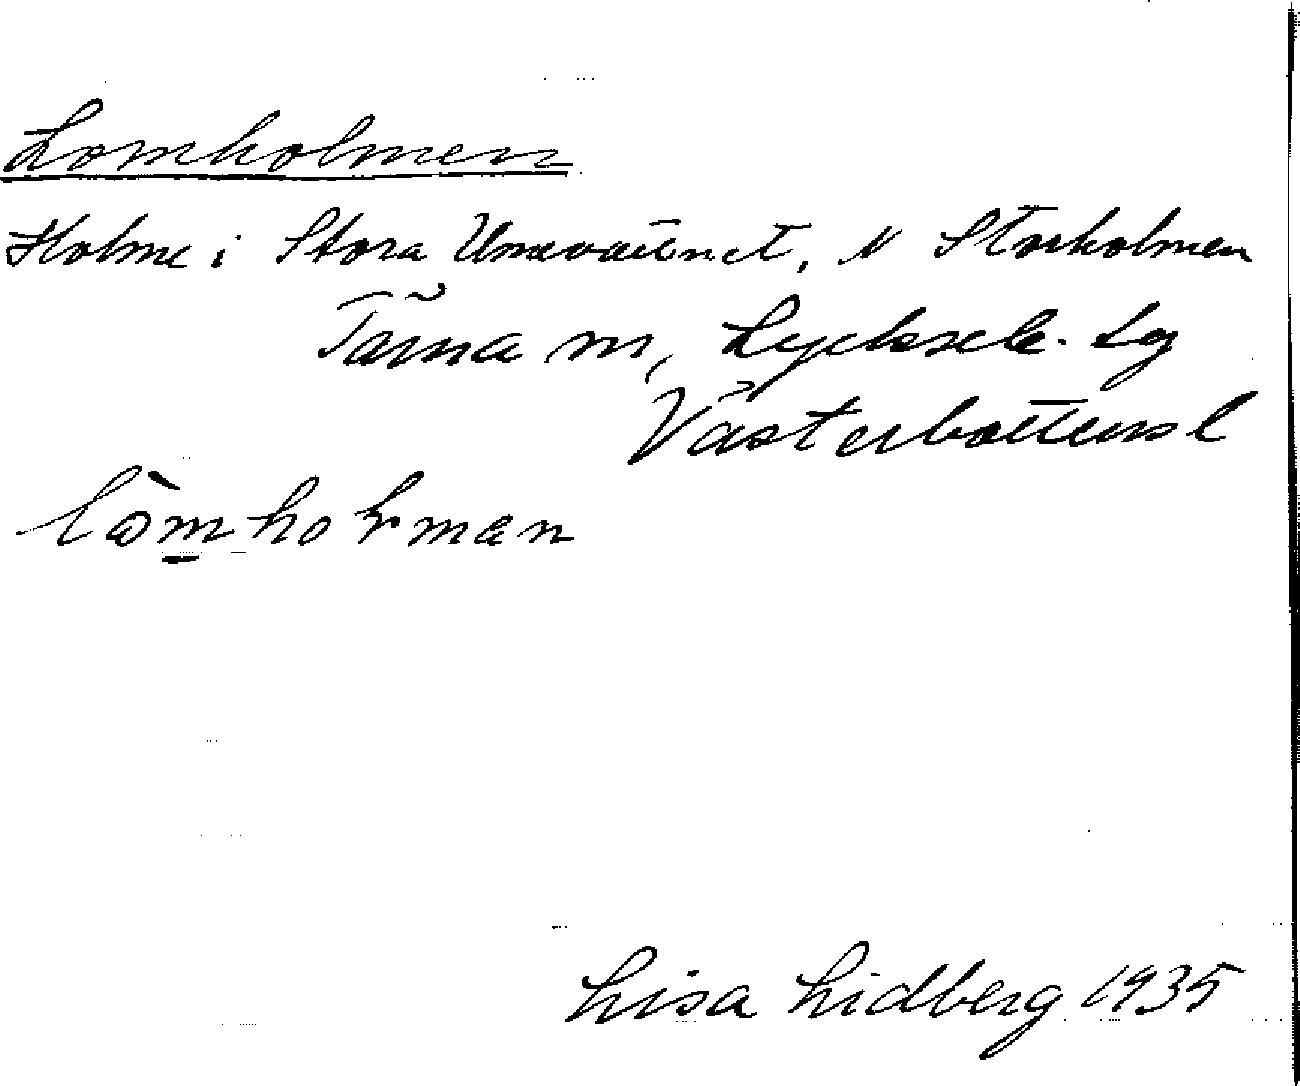 Lomholmen
Holme i Stora Umevattnet, N Storholmen
Tärna sn, Lycksele lg
Västerbottens l
lòm̱holman
Lisa Lidberg 1935